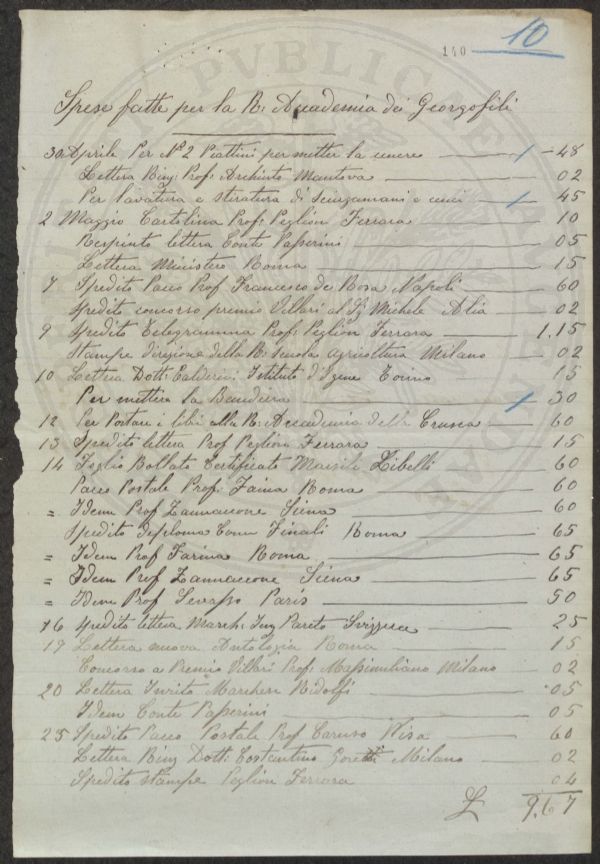 10
140
Spese fatte per la R: Accademia dei Georgofili
30 Aprile Per Nº 2 Piattini per metter la cenere - 48
Lettera Prof: Archinto Mantova 02
Per lavatura e stiratura di Sciugamani e cenci 45
2 Maggio Cartolina Prof: Peglion Ferrara 10
Respinto lettera Conte Passerini 05
Lettera Ministero Roma 15
7 Spedito Pacco Prof Francesco de Rosa Napoli 60
Spedito concorso premio Villari al Sg Michele Alia 02
9 Spedito Telegramma Prof: Peglion Ferrara 1,15
Stampe direzione della R: Scuola agricoltura Milano 02
10 Lettera Dott: Calderini Istituto d'Igene Torino 15
Per mettere la Bandiera 30
12 Per Portare i libri alla R: Accademia della Crusca 60
13 Spedito lettera Prof Peglion Ferrara 15
14 Foglio Bollato Certificato Libelli 60
Pacco Postale Prof: Faina Roma 60
= Idem Prof Zannaccone Siena 60
Spedito diploma Comm Finali Roma 65
= Idem Prof Farina Roma 65
= Idem Prof Zannaccone Siena 65
= Idem Prof Levasso Paris 50
16 Spedito lettera March: Ing Pareto Svizzera 25
17 Lettera nuova Antologia Roma 15
Concorso a Premio Villari Prof: Massimiliano Milano 02
20 Lettera Invito Marchese Ridolfi 05
Idem Conte Passerini 05
25 Spedito Pacco Postale Prof Caruso Pisa 60
Lettera Dott: Costantino Goretti Milano 02
Spedito stampe Peglion Ferrara 04
£ 9,67